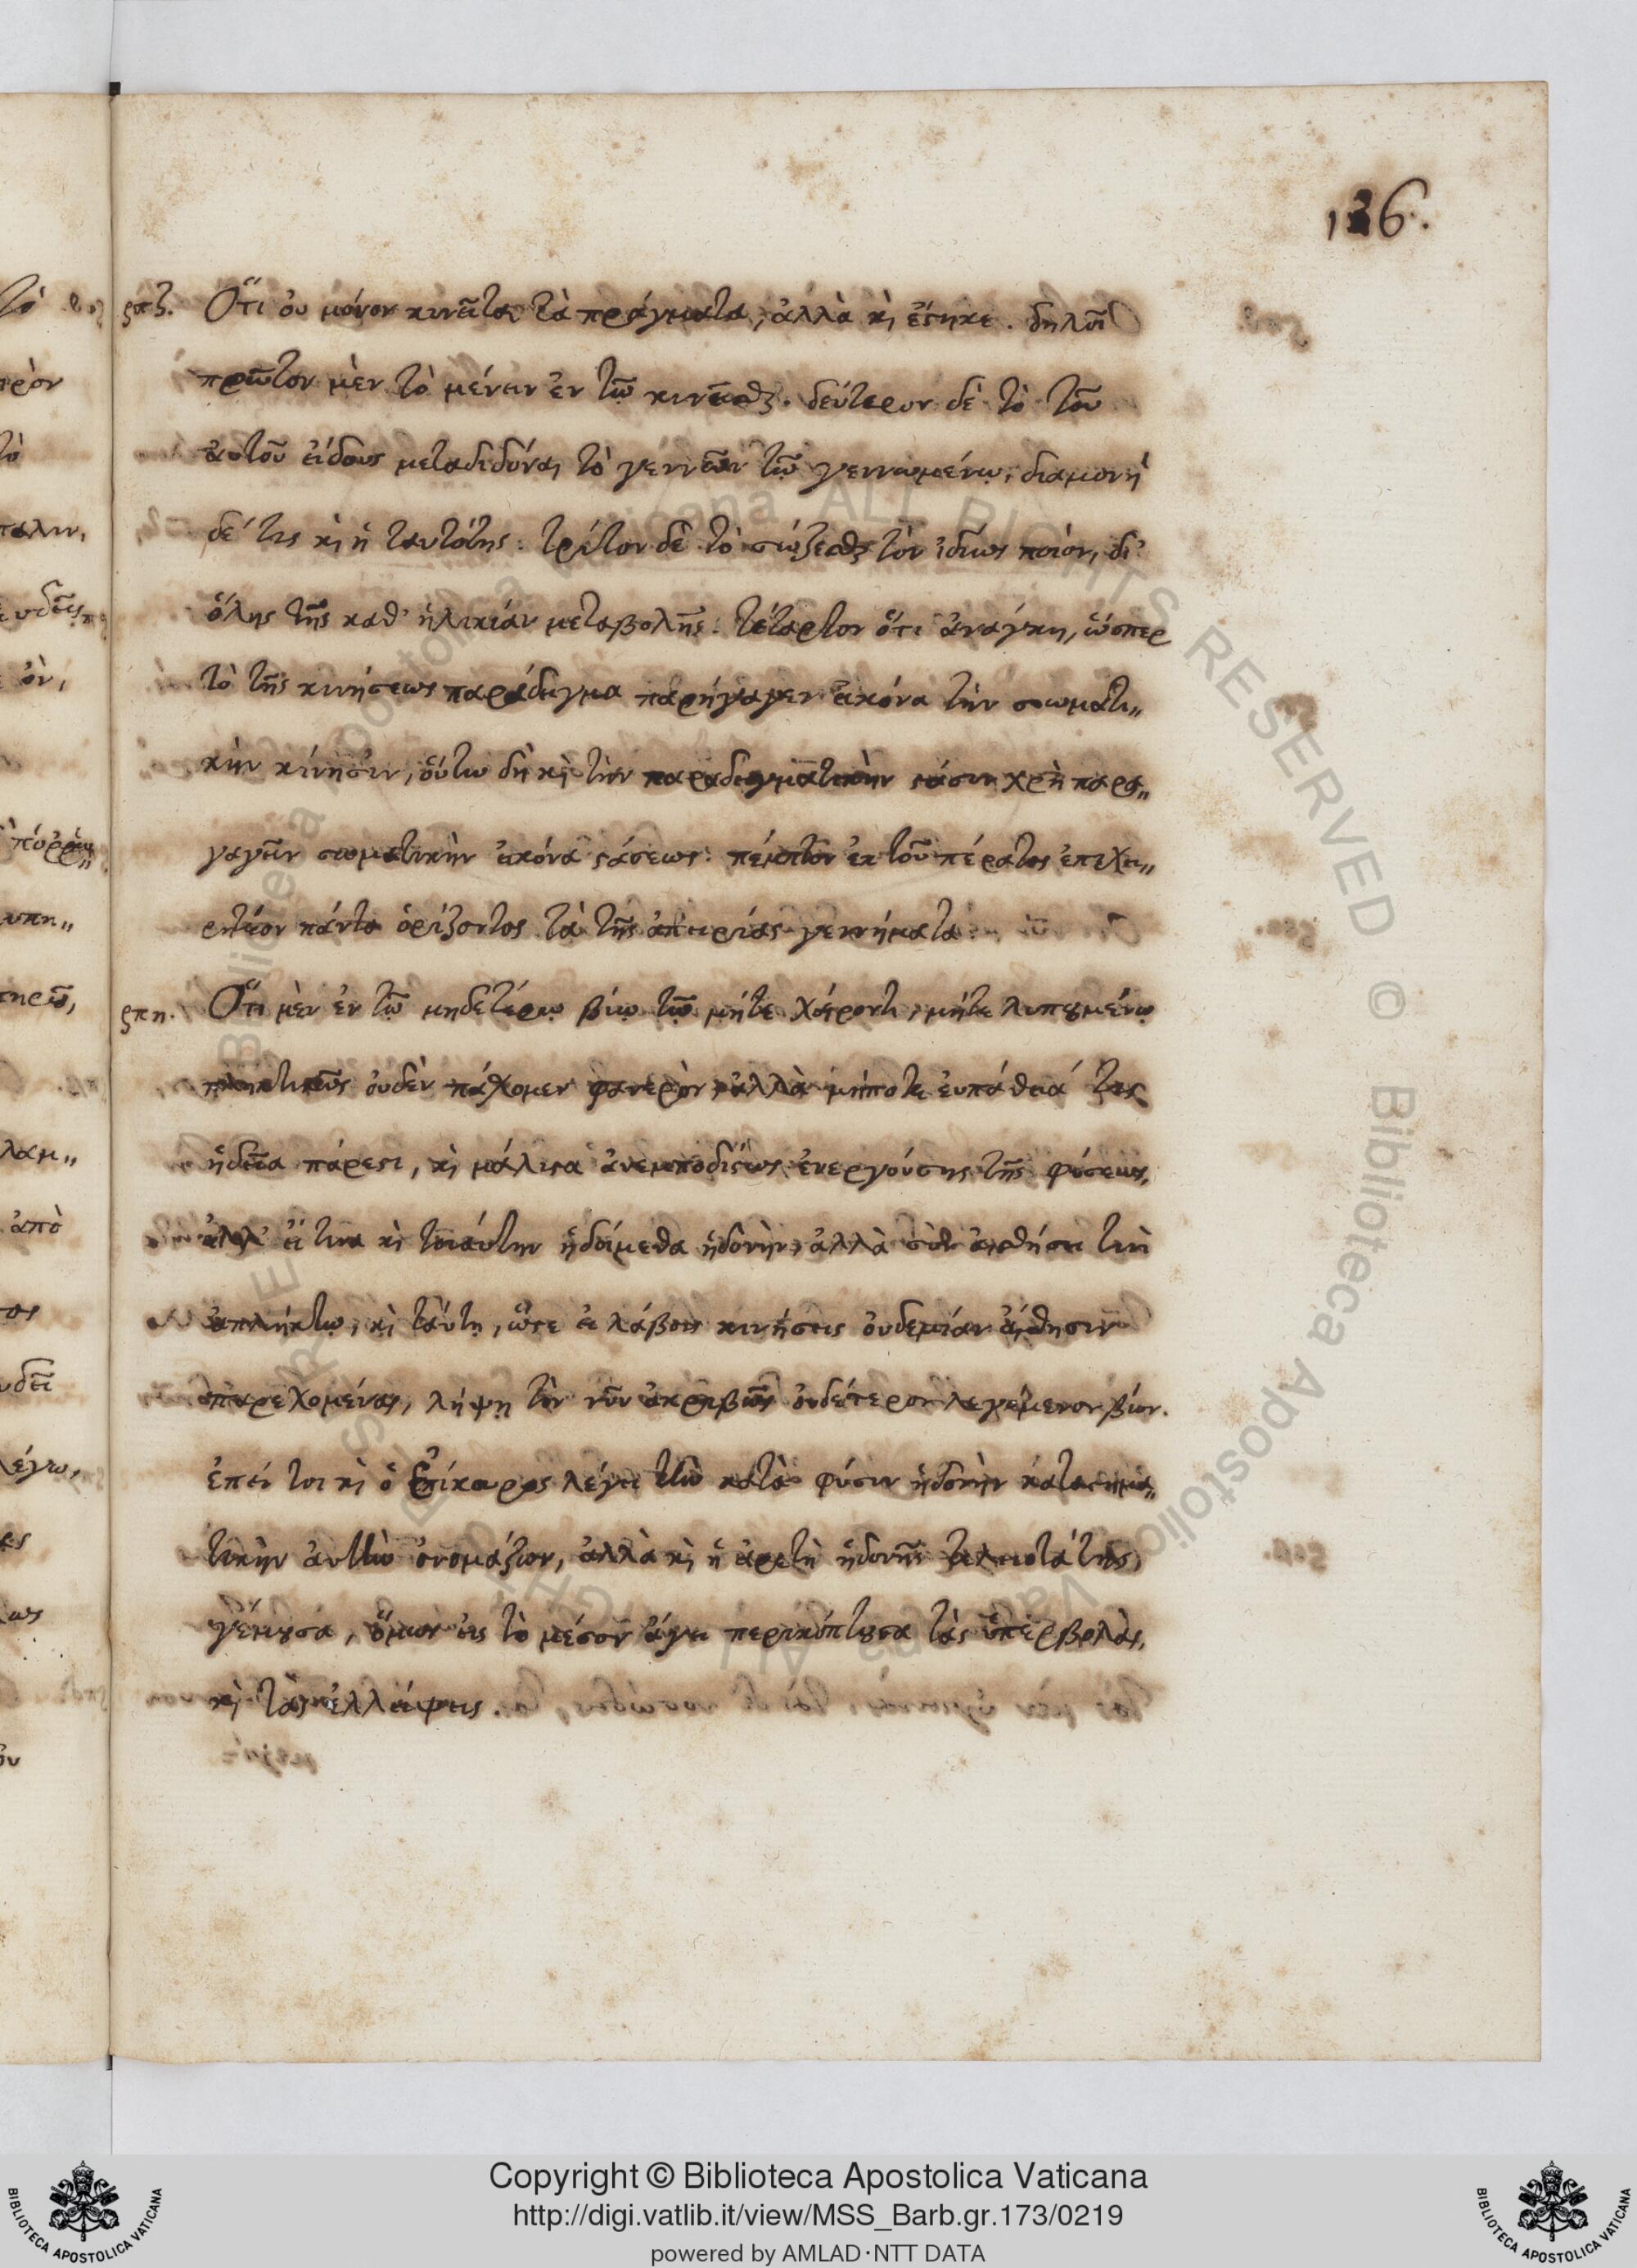 136.
ςπζ. Ὅτι οὐ μόνον κινεῖται τὰ πράγματα, ἀλλὰ κὶ ἕστηκε. δηλοῖ
πρῶτον μὲν τὸ μένειν ἐν τῷ κινεῖσθαι. δεύτερον δὲ τὸ τοῦ
αὐτοῦ εἴδους μεταδιδόναι τὸ γεννῶν τῷ γεννωμένῳ, διαμονὴ
δέ τις κὶ ἡ ταυτότης. τρίτον δὲ τὸ σώζεσθαι τὸν ἰδίως ποιὸν, δι'
ὅλης τῆς καθ' ἡλικίαν μεταβολῆς. τέταρτον ὅτι ἀνάγκη, ὥσπερ
τὸ τῆς κινήσεως παράδειγμα παρήγαγεν εἰκόνα τὴν σωματι„
κὴν κίνησιν, οὕτω δὴ κὶ τὴν παραδειγματικὴν στάσιν χρὴ παρα„
γαγεῖν σωματικὴν εἰκόνα στάσεως. πέμπτον ἐκ τοῦ πέρατος ἐπιχει„
ρητέον πάντα ὁρίζοντος τὰ τῆς ἀπειρίας γεννήματα.
ςπη. Ὅτι μὲν ἐν τῷ μηδετέρῳ βίῳ τῷ μήτε χαίροντι, μήτε λυπουμένῳ
πληκτικῶς οὐδὲν πάσχομεν φανερὸν, ἀλλὰ μήποτε εὐπάθειά τις
ἡδεῖα πάρεστι, κὶ μάλιστα ἀνεμποδίστως ἐνεργούσης τῆς φύσεως,
ἀλλ' εἴ τινα κὶ τοιαύτην ἡδοίμεθα ἡδονὴν, ἀλλὰ σὺν αἰσθήσει τινὶ
ἀπλήκτῳ, κὶ ταύτῃ, ὥστε εἰ λάβοις κινήσεις οὐδεμίαν αἴσθησιν
παρεχομένας, λήψῃ τὸν νῦν ἀκριβῶς οὐδέτερον λεγόμενον βίον.
ἐπεί τοι κὶ ὁ Ἐπίκουρος λέγει τὴν κατὰ φύσιν ἡδονὴν καταστημα„
τικὴν αὐτὴν ὀνομάζων, ἀλλὰ κὶ ἡ ἀρετὴ ἡδονῆς τελειοτάτης
γέμουσα, ὅμως εἰς τὸ μέσον ἄγει περικόπτουσα τὰς ὑπερβολὰς,
κὶ τὰς ἐλλείψεις.
Copyright © Biblioteca Apostolica Vaticana
http://digi.vatlib.it/view/MSS_Barb.gr.173/0219
powered by AMLAD·NTT DATA